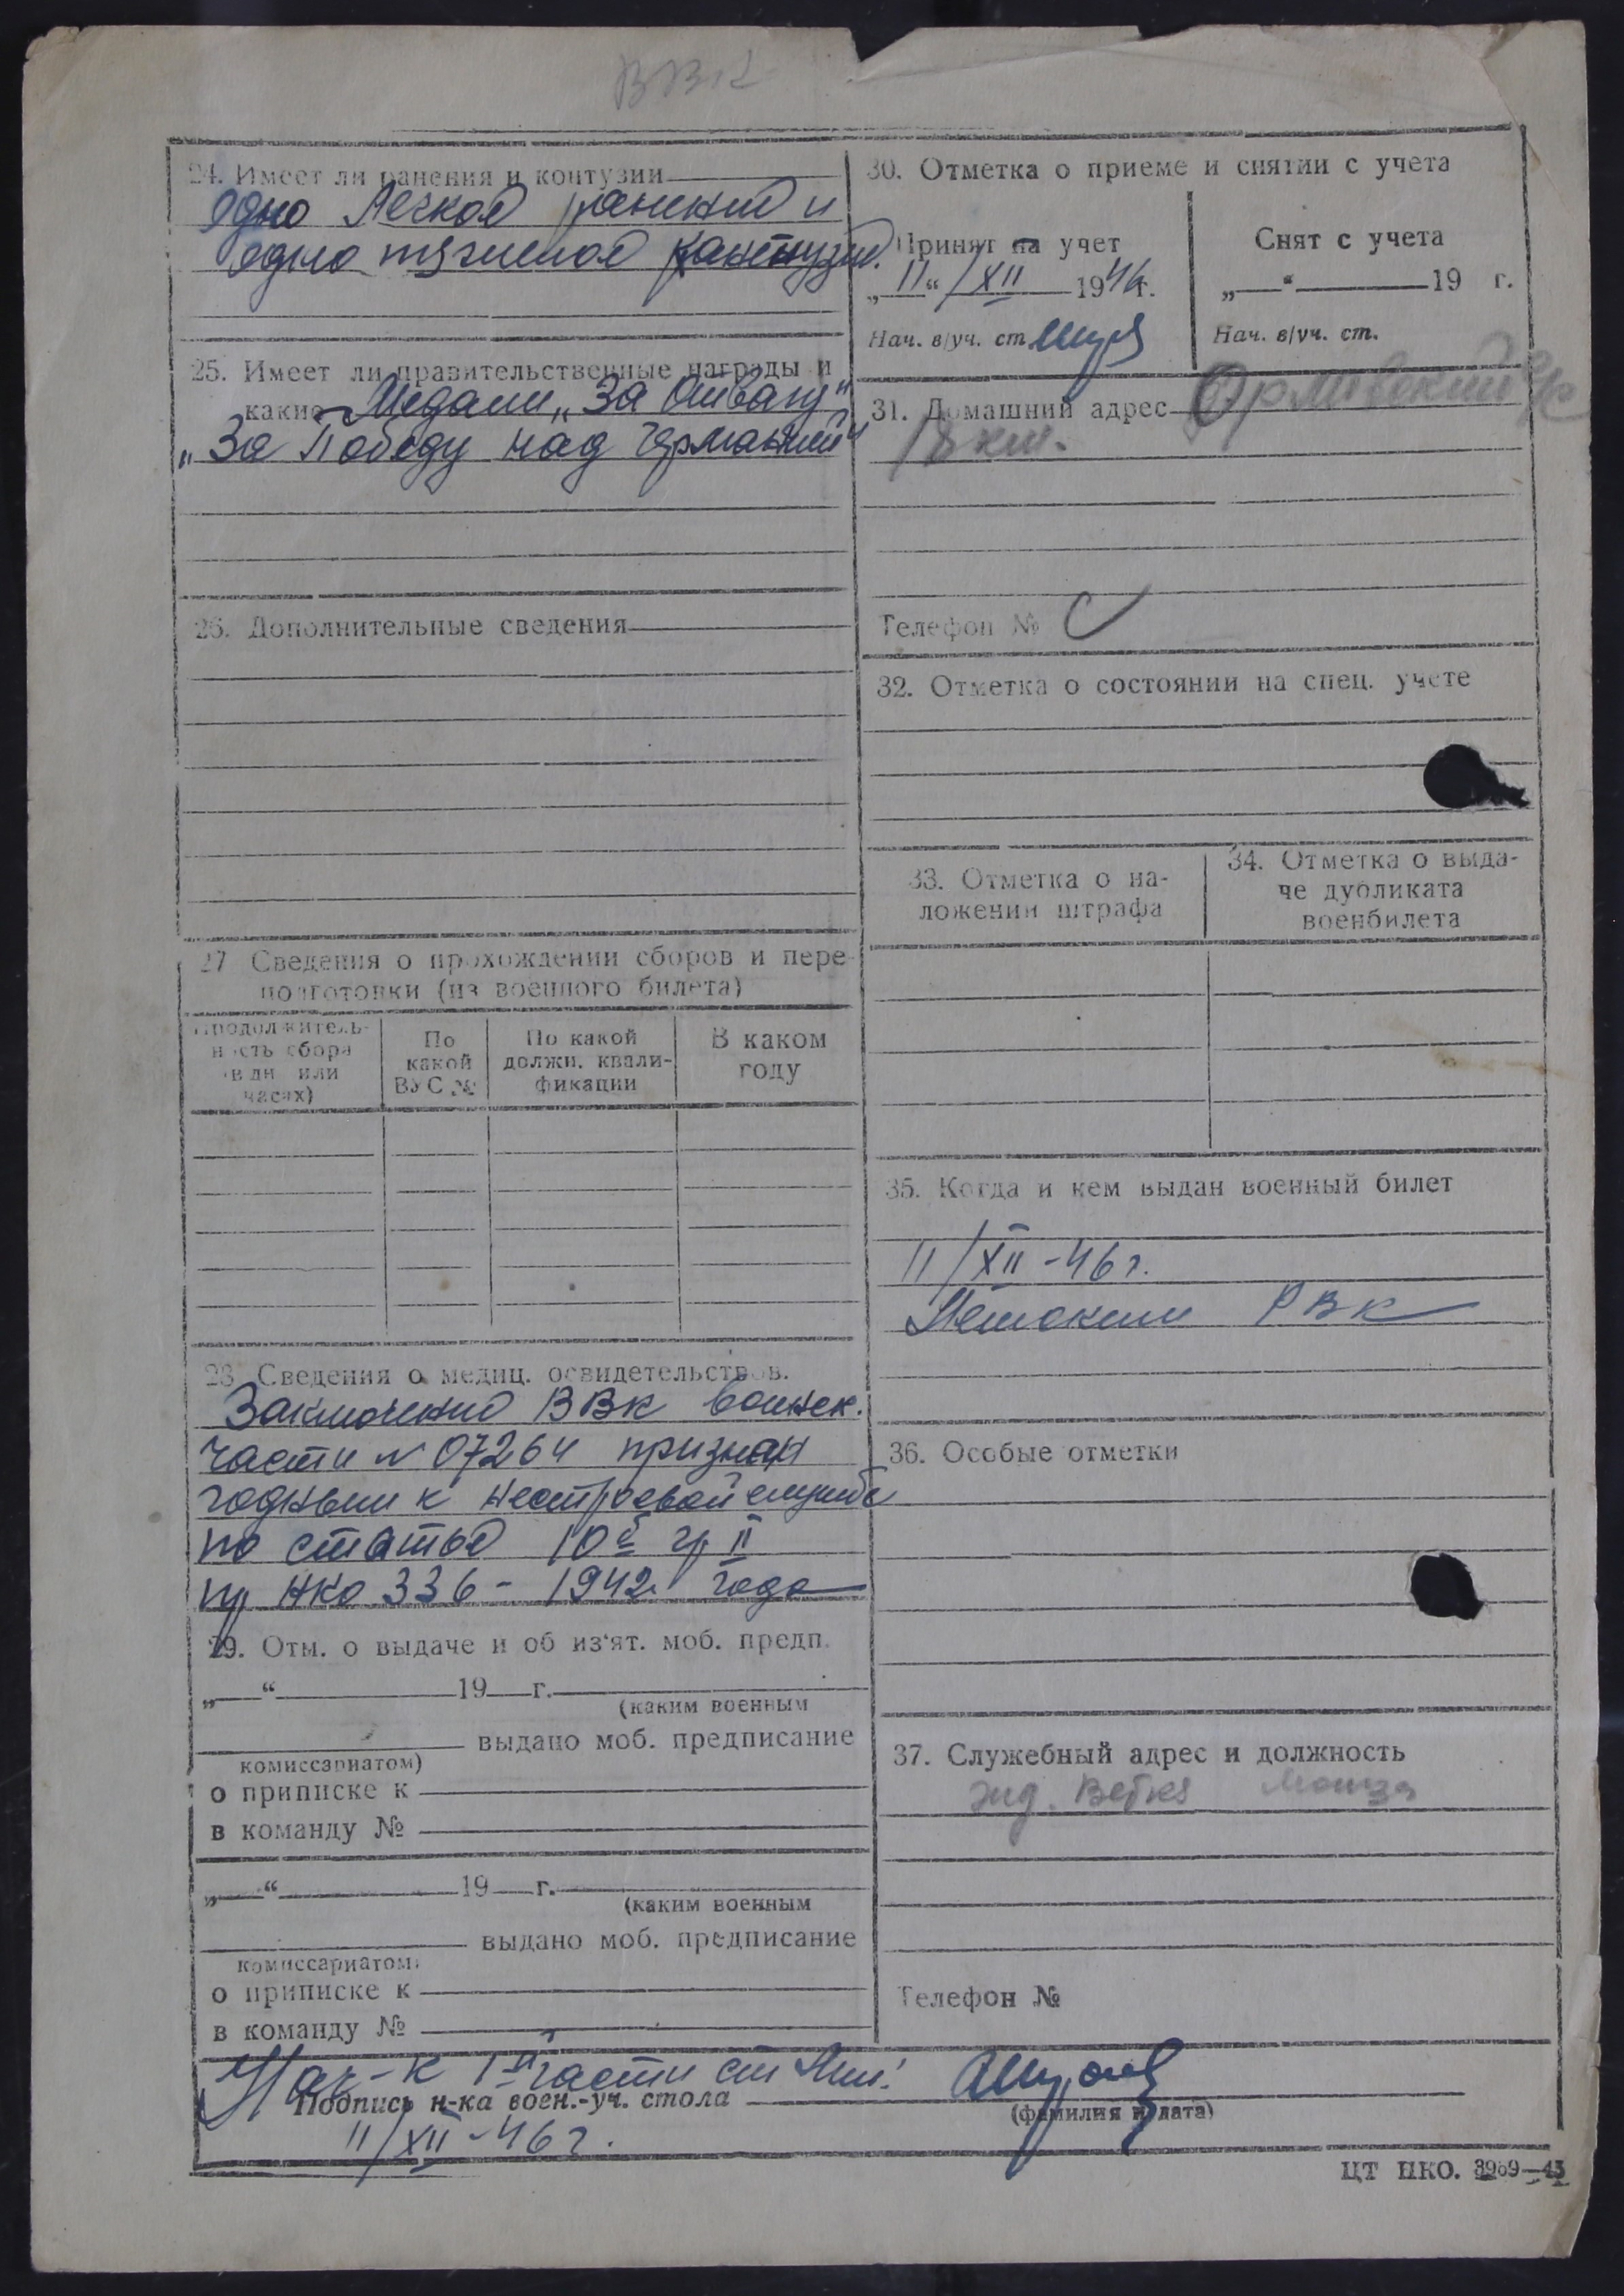 ВВК
24. Имеет ли ранения и контузии
одно легкое ранение и
одно тяжелое контузие.
25. Имеет ли правительственные награды и
какие Медали „За Отвагу"
„За Победу над Германией"
26. Дополнительные сведения
27 Сведения о прохождении сборов и пере-
подготовки (из военного билета)
Продолжитель-
ность сбора
(в дн или
часах)
По
какой
ВУС №
По какой
должн. квали-
фикации
В каком
году
28. Сведения о медиц. освидетельствов.
Заключение ВВК воинск.
части № 07264 признан
годным к нестроевой службе
по статье 10б гр II
пр НКО 336 - 1942 года
29. Отм. о выдаче и об из'ят. моб. предп.
„ “ 19 г.
(каким военным
выдано моб. предписание
комиссариатом)
о приписке к
в команду №
„ “ 19 г.
(каким военным
выдано моб. предписание
комиссариатом)
о приписке к
в команду №
30. Отметка о приеме и снятии с учета
Принят на учет
„11“ /XII 1946г.
Нач. в/уч. ст.
Снят с учета
„ “ 19 г.
Нач. в/уч. ст.
31. Домашний адрес
18 км.
Телефон №
32. Отметка о состоянии на спец. учете
33. Отметка о на-
ложении штрафа
34. Отметка о выда-
че дубликата
военбилета
35. Когда и кем выдан военный билет
11/XII-46 г.
РВК
36. Особые отметки
37. Служебный адрес и должность
Телефон №
Нач-к 1й части ст Лей.
Подпись н-ка воен.-уч. стола
(фамилия и дата)
11/XII-46 г.
ЦТ НКО. 3989—43